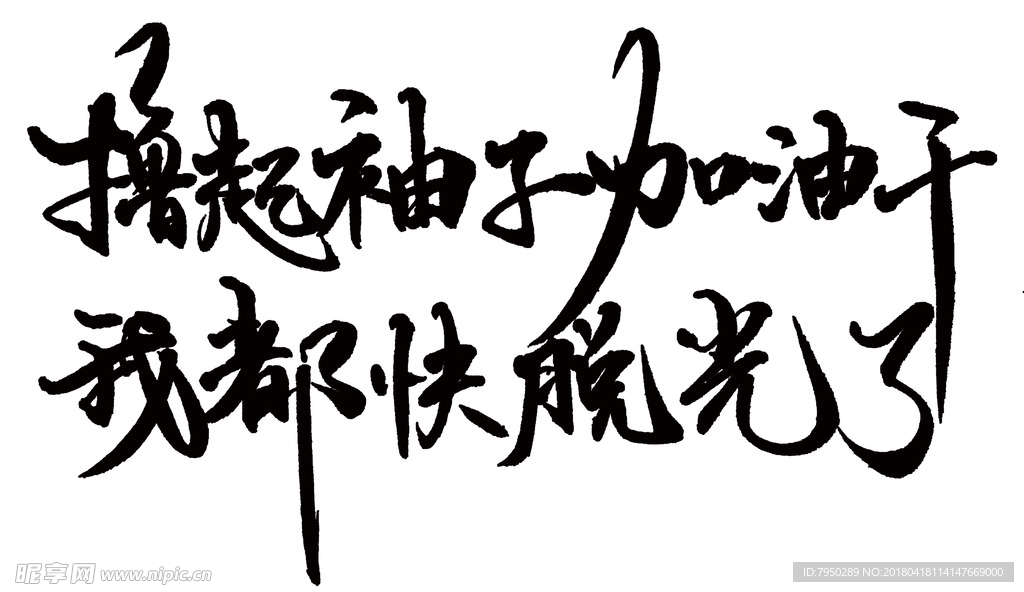 撸起袖子加油干
我都快脱光了
昵享网 www.nipic.cn
ID:7950289 NO:20180418114147669000